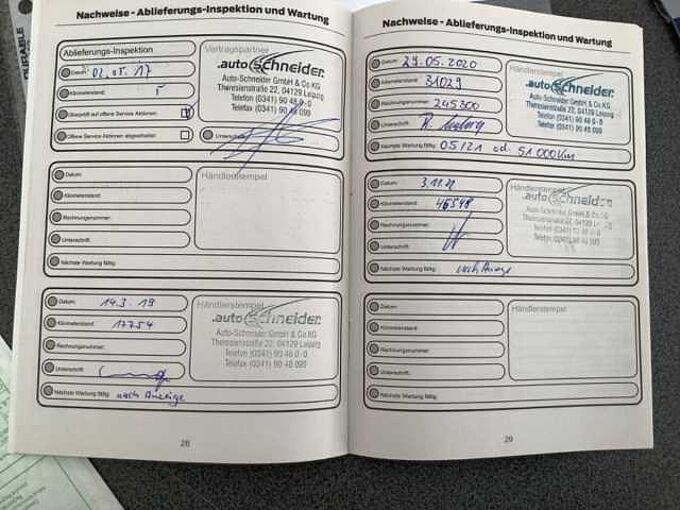 DURABLE
Nachweise - Ablieferungs-Inspektion und Wartung
Ablieferungs-Inspektion
Datum: 02.05.17
Kilometerstand: 5
Überprüft auf offene Service Aktionen:
Offene Service-Aktionen abgearbeitet:
Vertragspartner
auto schneider.
Auto-Schneider GmbH & Co KG
Theresienstraße 22, 04129 Leipzig
Telefon (0341) 90 46 0-0
Telefax (0341) 90 46 090
Unterschrift:
Datum:
Kilometerstand:
Rechnungsnummer:
Unterschrift:
Nächste Wartung fällig:
Händlerstempel
Datum: 14.3.19
Kilometerstand: 17754
Rechnungsnummer:
Unterschrift:
Nächste Wartung fällig: nach Anzeige
Händlerstempel
auto schneider.
Auto-Schneider GmbH & Co KG
Theresienstraße 22, 04129 Leipzig
Telefon (0341) 90 46 0-0
Telefax (0341) 90 46 090
28
Nachweise - Ablieferungs-Inspektion und Wartung
Datum: 29.05.2020
Kilometerstand: 31029
Rechnungsnummer: 245300
Unterschrift:
Nächste Wartung fällig: 05/21 od. 51000Km
Händlerstempel
auto schneider.
Auto-Schneider GmbH & Co KG
Theresienstraße 22, 04129 Leipzig
Telefon (0341) 90 46 0-0
Telefax (0341) 90 46 090
Datum:
Kilometerstand: 46548
Rechnungsnummer:
Unterschrift:
Nächste Wartung fällig: nach Anzeige
Händlerstempel
auto schneider.
Auto-Schneider GmbH & Co KG
Theresienstraße 22, 04129 Leipzig
Telefon (0341) 90 46 0-0
Telefax (0341) 90 46 090
Datum:
Kilometerstand:
Rechnungsnummer:
Unterschrift:
Nächste Wartung fällig:
Händlerstempel
29